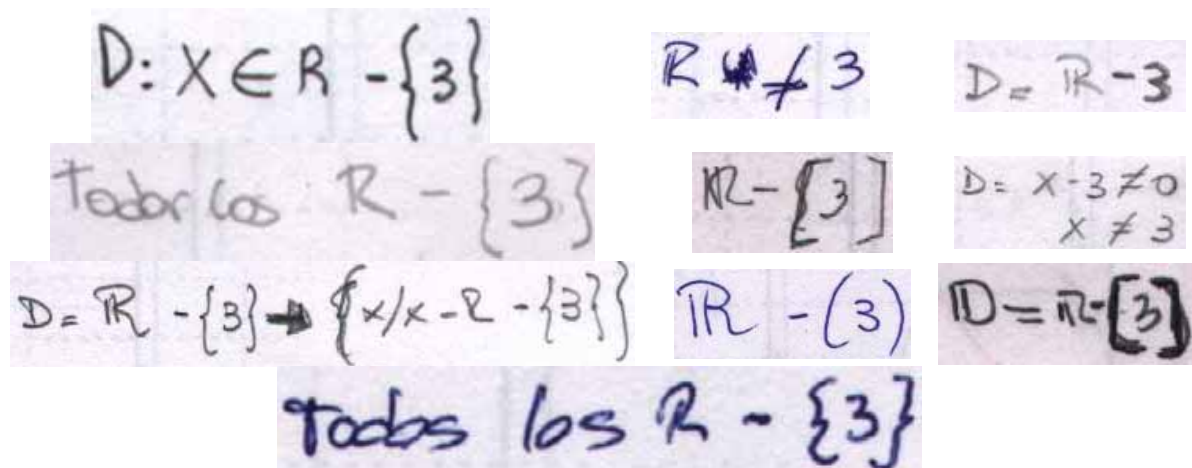 D: X ∈ R - {3}
R ≠ 3
D = ℝ - 3
Todos los R - {3}
ℝ - [3]
D = x - 3 ≠ 0
x ≠ 3
D = ℝ - {3} → {x/x - R - {3}}
ℝ - (3)
D = ℝ - [3]
Todos los R - {3}